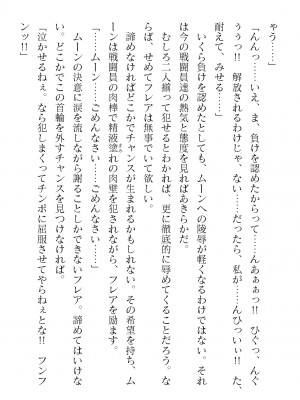 ゃう……」
「んんっ……いえ、ま、負けを認めたからって……んあぁぁっ!! ひぐっ、んぐ
ぅぅっ!! 解放されるわけじゃ、ない……だったら、私が……んひっいぃ!! た、
耐えて、みせる……」
いくら負けを認めたとしても、ムーンへの陵辱が軽くなるわけではない。それ
は今の戦闘員達の熱気と態度を見ればあきらかだ。
むしろ二人揃って犯せるとわかれば、更に徹底的に辱めてくることだろう。な
らば、せめてフレアは無事でいて欲しい。
諦めなければどこかでチャンスが生まれるかもしれない。その希望を持ち、ム
ーンは戦闘員の肉棒で精液塗れの肉壁を犯されながら、フレアを励ます。
「……ムーン……ごめんなさい……ごめんなさい……」
ムーンの決意に涙を流しながら謝ることしかできないフレア。諦めてはいけな
い。どこかでこの首輪を外すチャンスを見つけなければ。
「泣かせるねぇ。なら犯しまくってチンポに屈服させてやらねぇとな!! フンフ
ンッ!!」